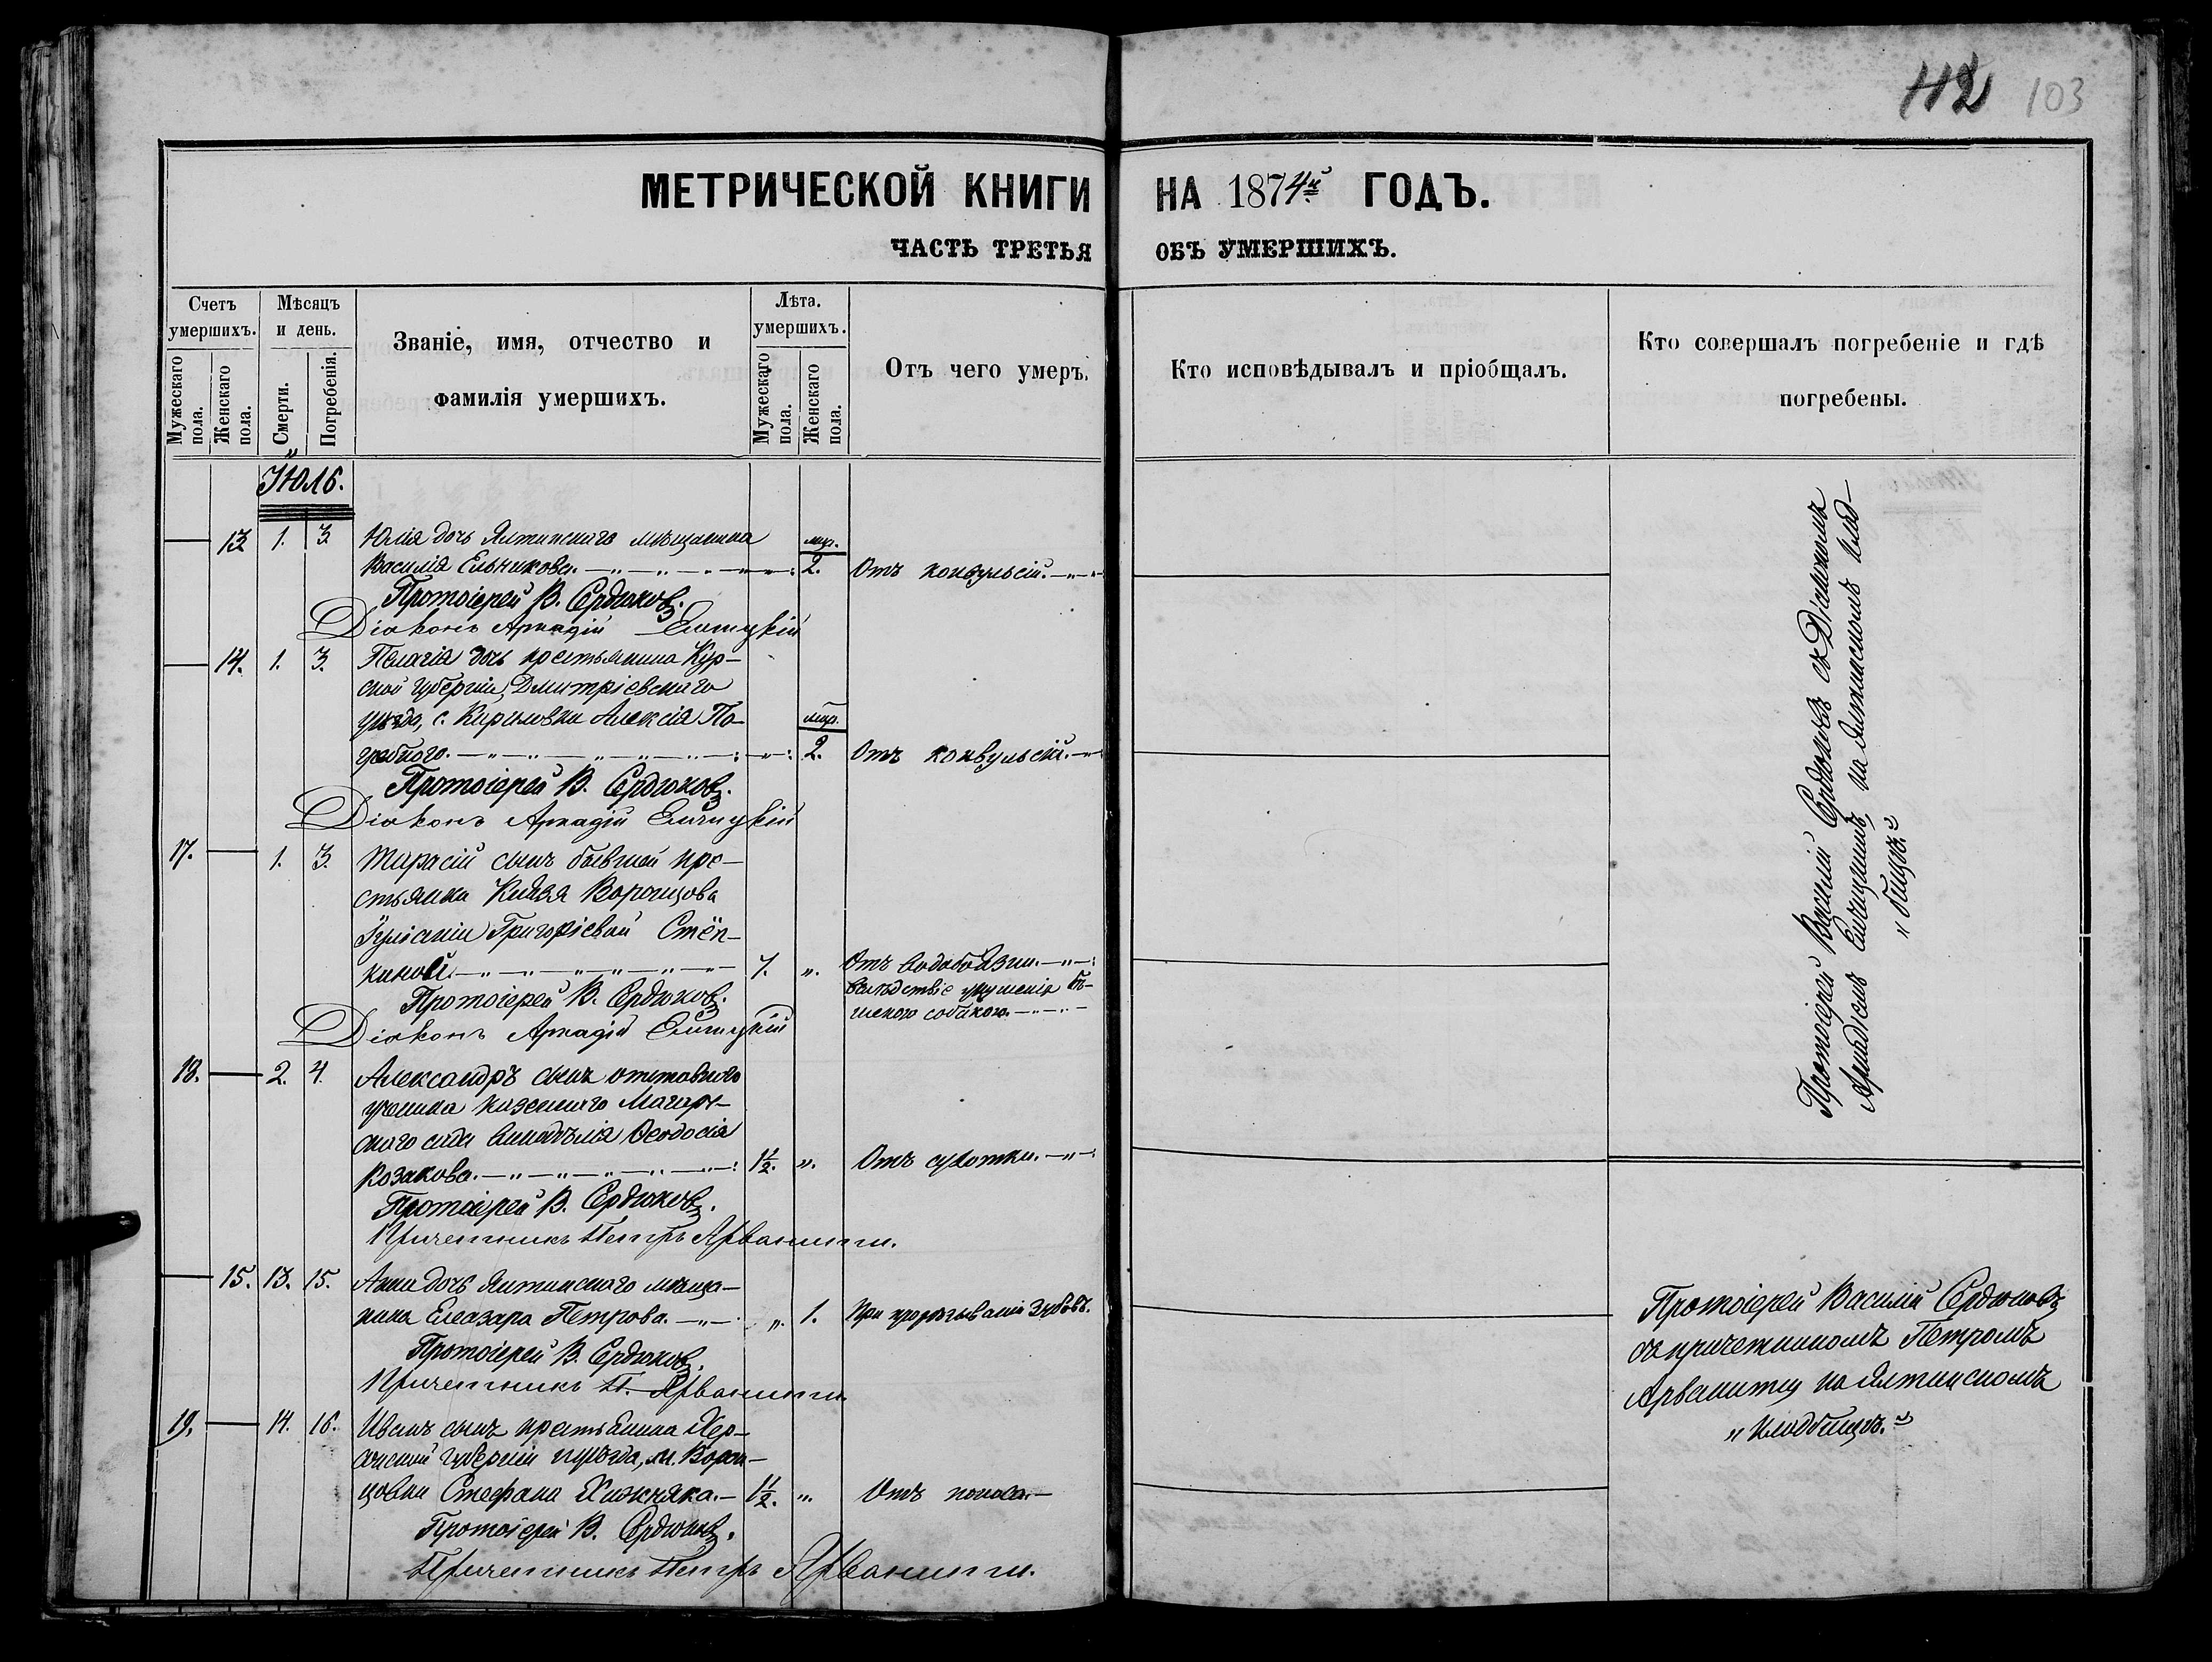 112 103
МЕТРИЧЕСКОЙ КНИГИ НА 1874й ГОДЪ.
ЧАСТЬ ТРЕТЬЯ ОБЪ УМЕРШИХЪ.
Счетъ умершихъ.
Мужескаго пола.
Женскаго пола.
Мѣсяцъ и день.
Смерти.
Погребенія.
Званіе, имя, отчество и
фамилія умершихъ.
Лѣта. умершихъ.
Мужескаго пола.
Женскаго пола.
Отъ чего умеръ.
Кто исповѣдывалъ и пріобщалъ.
Кто совершалъ погребеніе и гдѣ
погребены.
Іюль.
13 1. 3. Юлія дочь Ялтинскаго мѣщанина
Василія Ельникова. 2. Отъ конвульсій.
Протоіерей В. Сердюковъ.
Діаконъ Аркадій
14. 1. 3. Пелагія дочь крестьянина Кур-
ской губерніи, Дмитріевскаго
уѣзда, с. Кириловки Алексія По-
гребного. 2. Отъ конвульсій.
Протоіерей В. Сердюковъ.
Діаконъ Аркадій
17. 1. 3. Тарасій сынъ бывшей кре-
стьянки Князя Воронцова
Іуліаніи Григоріевой Стёп-
киной. 7. „. Отъ водобоязни
вслѣдствіе укушенія бѣ-
шеною собакою.
Протоіерей В. Сердюковъ.
Діаконъ Аркадій
18. 2. 4. Александръ сынъ отставного
ученика казеннаго Магара-
скаго сада винодѣлія Ѳеодосія
Козакова. 1½. „. Отъ сухотки.
Протоіерей В. Сердюковъ.
Причетникъ Петръ Арванити.
15. 13. 15. Анна дочь Ялтинскаго мѣща-
нина Елеазара Петрова. „. 1. При прорѣзываніи зубовъ.
Протоіерей В. Сердюковъ.
Причетникъ П. Арванити.
19. 14. 16. Иванъ сынъ крестьянина Хер-
сонской губерніи и уѣзда, м. Ворон-
цовки Стефана Хижняка. 1½. „. Отъ поноса.
Протоіерей В. Сердюковъ.
Причетникъ Петръ Арванити.
Протоіерей Василій Сердюковъ съ Діакономъ
Аркадіемъ на Ялтинскомъ клад-
„бищѣ.“
Протоіерей Василій Сердюковъ
съ причетникомъ Петромъ
Арванити на Ялтинскомъ
„кладбищѣ.“